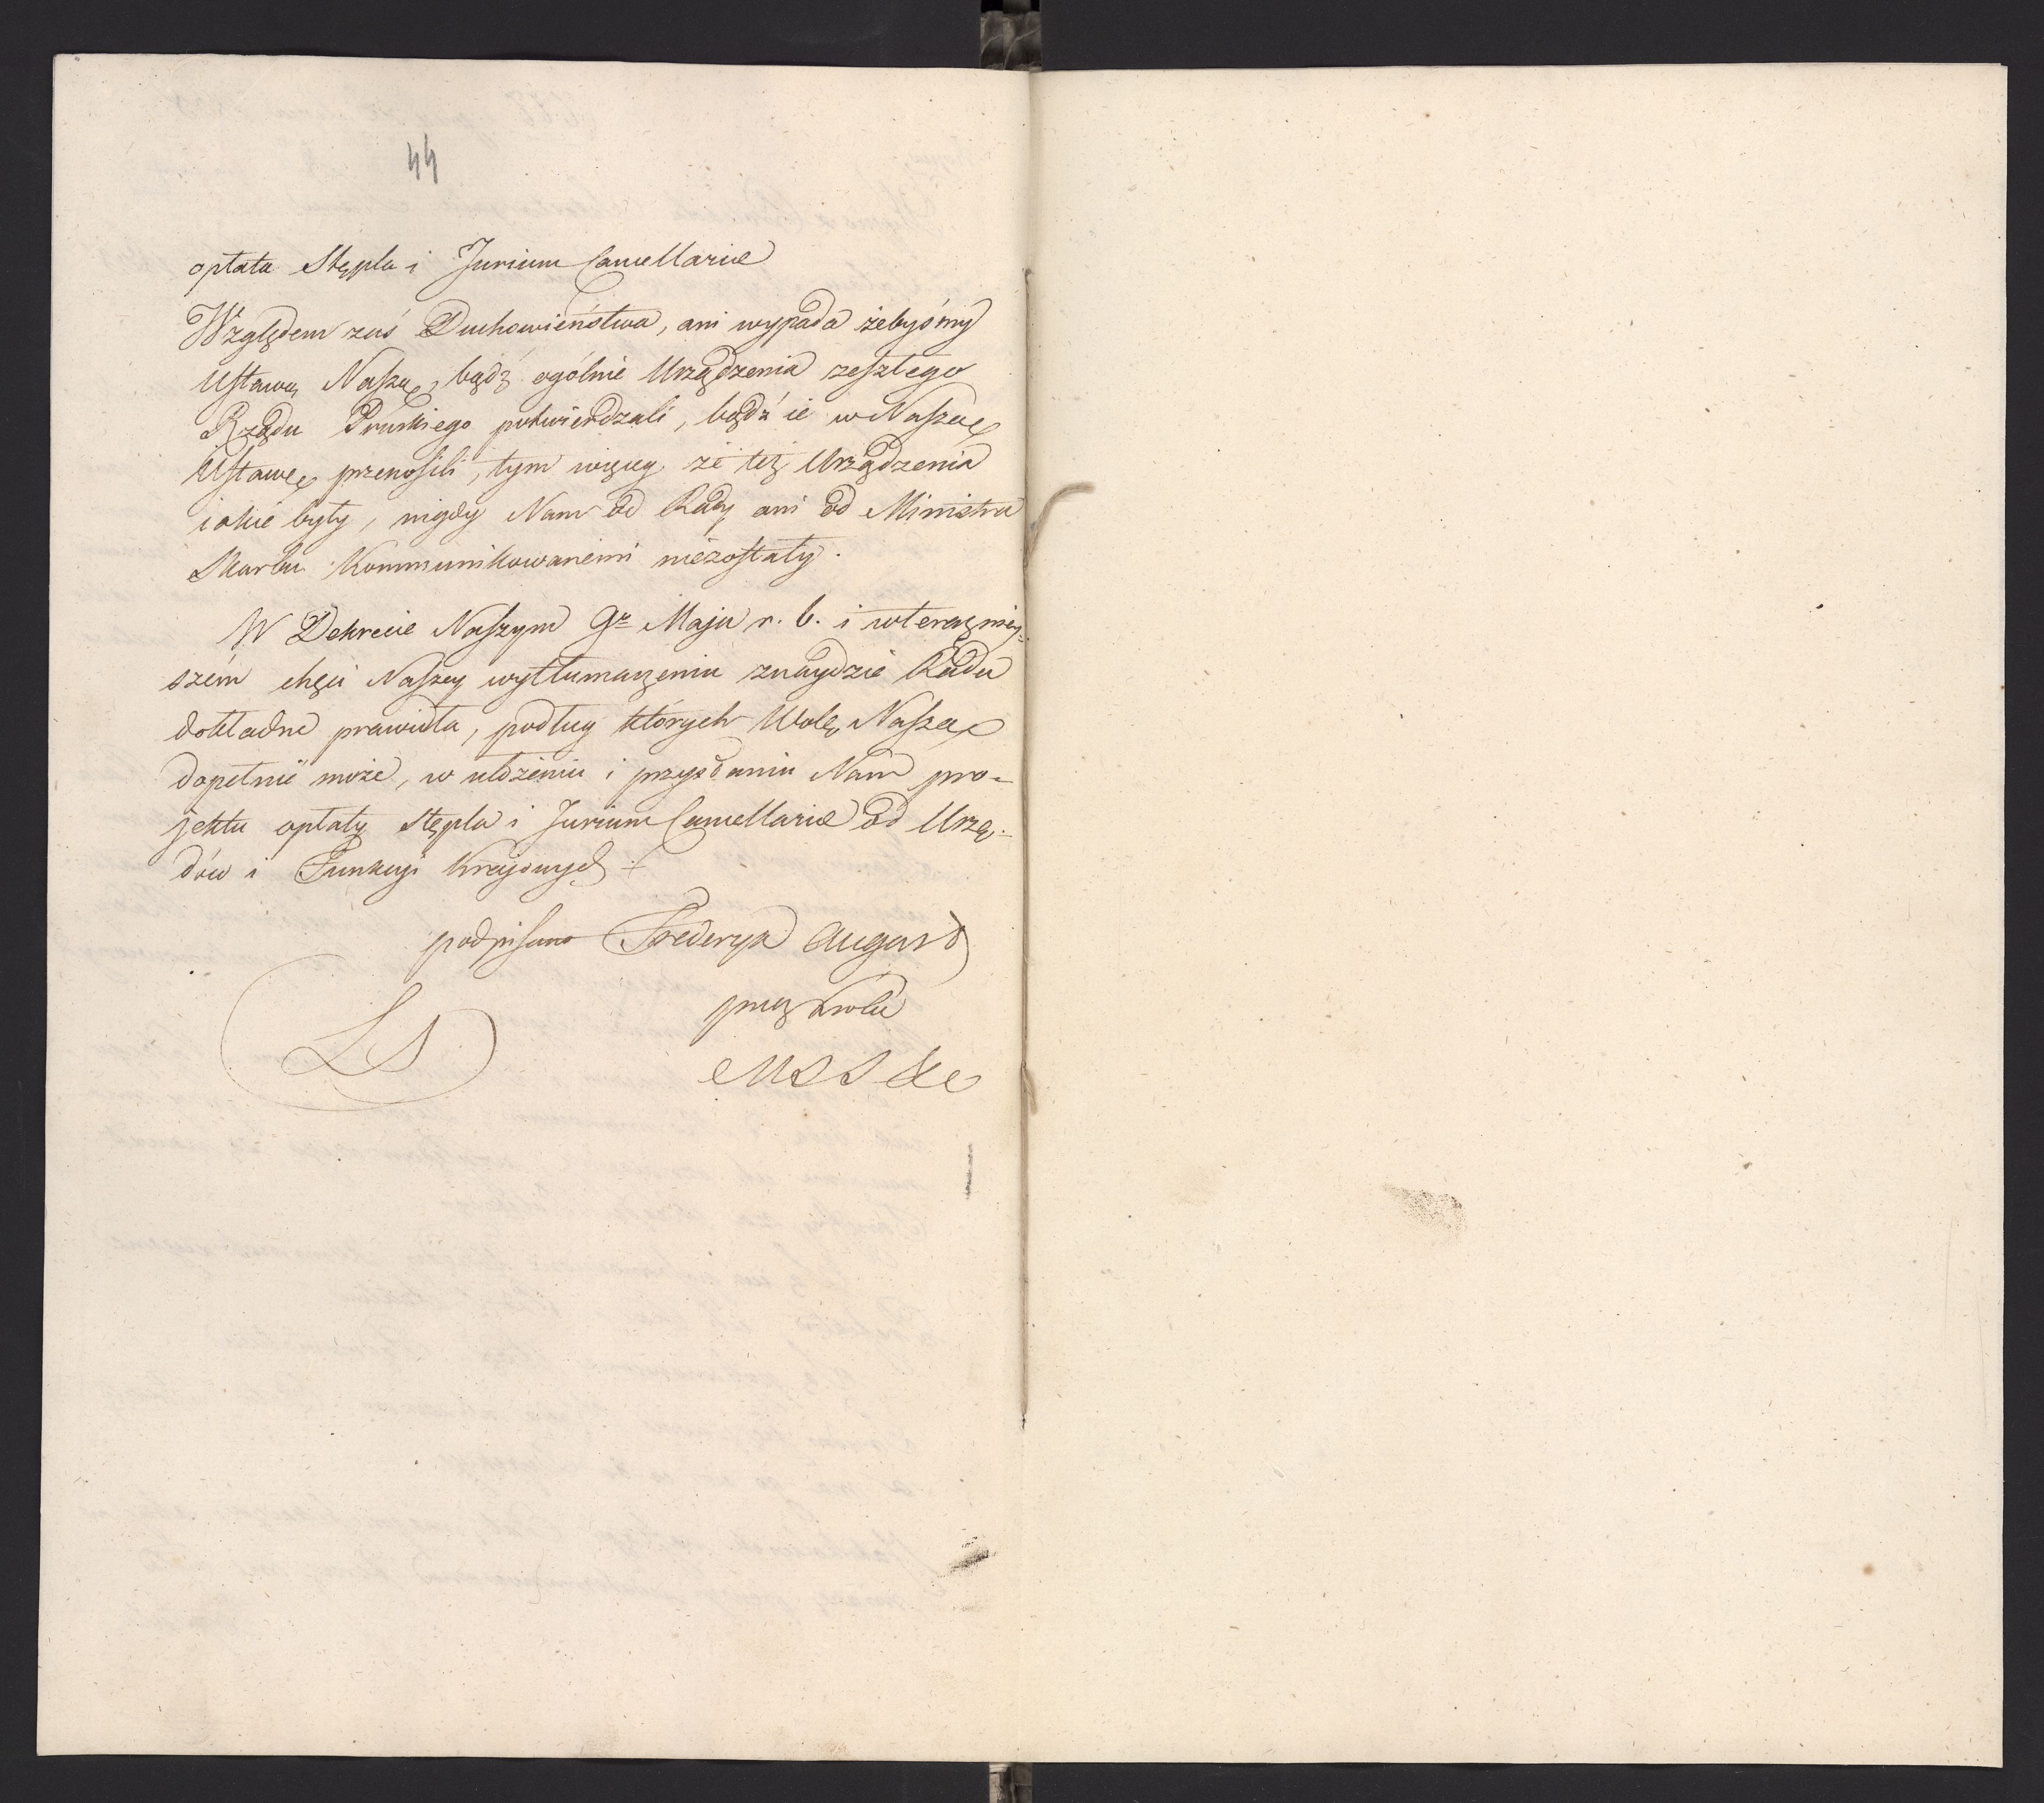 44
opłata Stępla i Jurium Cancellariæ
Względem zaś Duchowieństwa, ani wypada żebyśmy
Ustawą Naszą, bądź ogólnie Urządzenia zeszłego
Rządu Pruskiego potwierdzali, bądź ie w Naszą
Ustawę przenosili, tym więcy że też Urządzenia
iakie były, nigdy Nam od Rady ani od Ministra
Skarbu Kommunikowanemi niezostały.
W Dekrecie Naszym 9º Maja r. b. i w terazniey-
szém chęci Naszey wytłumaczeniu znaydzie Rada
dokładne prawidła, podług których Wolę Naszą
dopełnić może, w ułożeniu i przysłaniu Nam pro-
jektu opłaty Stępla i Jurium Cancellariæ od Urzę-
dów i Funkcyi Kraiowych
podpisano Frederyk August
przez Króla
LS
MSS &c